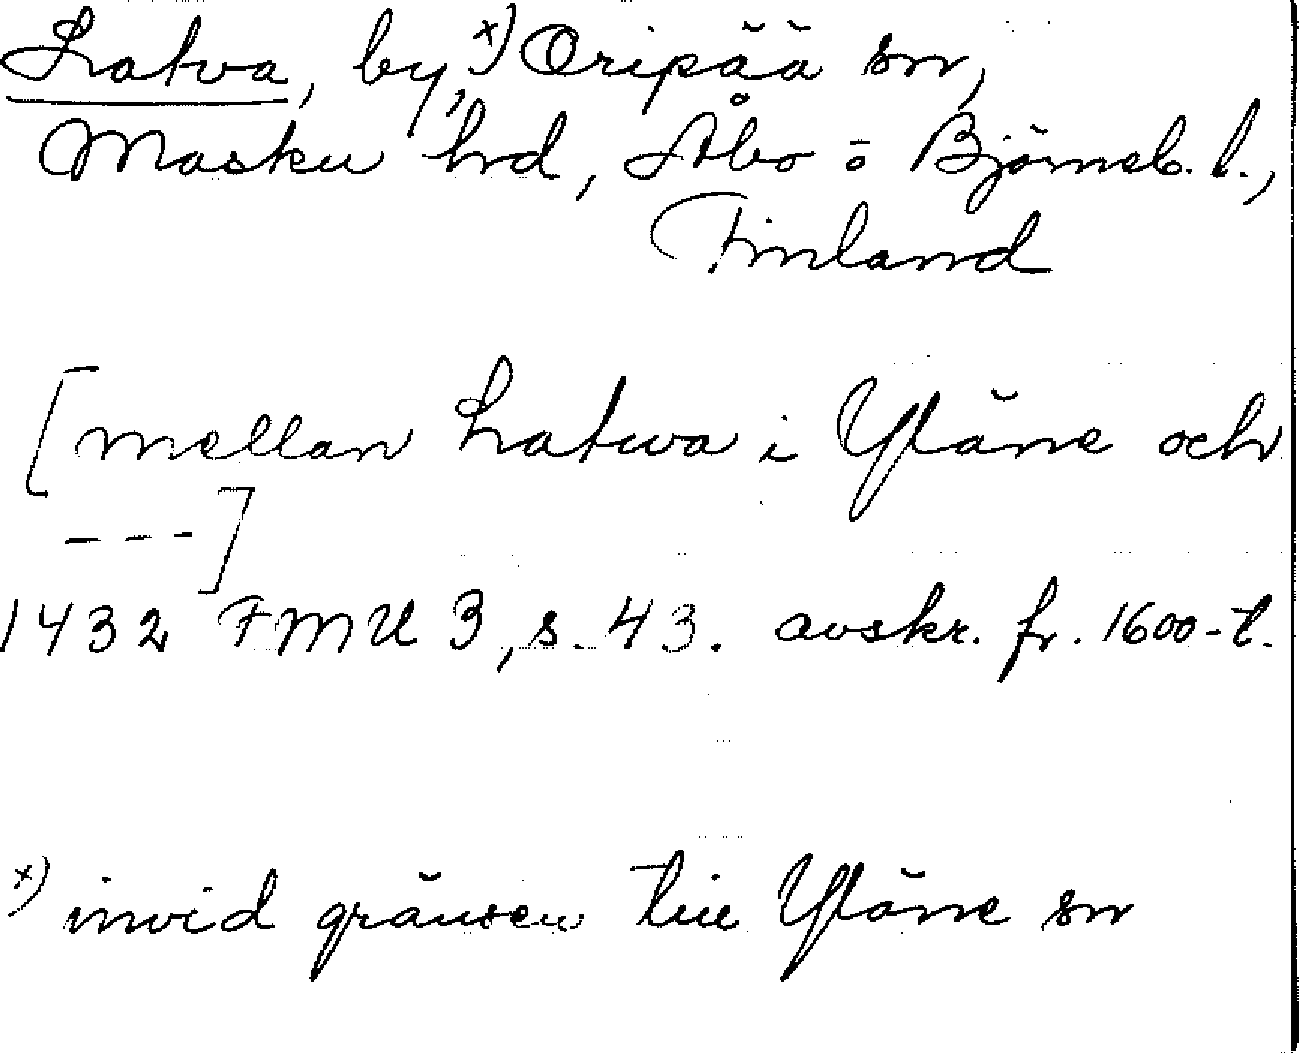 Latva, by,x) Oripää sn,
Masku hrd, Åbo o Björneb. l.,
Finland
[mellan Latwa i Yläne och
---]
1432 FMU 3, s. 43. avskr. fr. 1600-t.
x) invid gränsen till Yläne sn